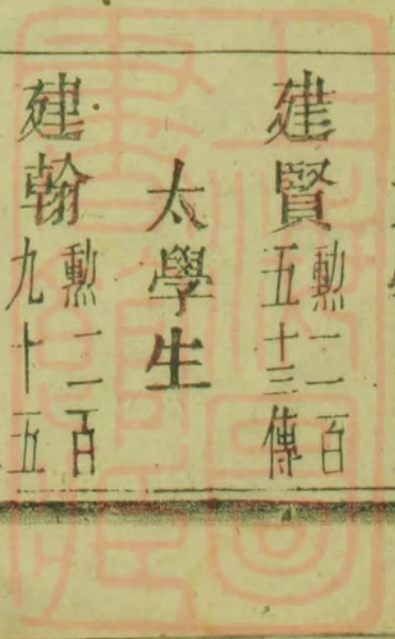 建賢
勲一二百
五十三傳
太學生
建翰
勲一二百
九十五